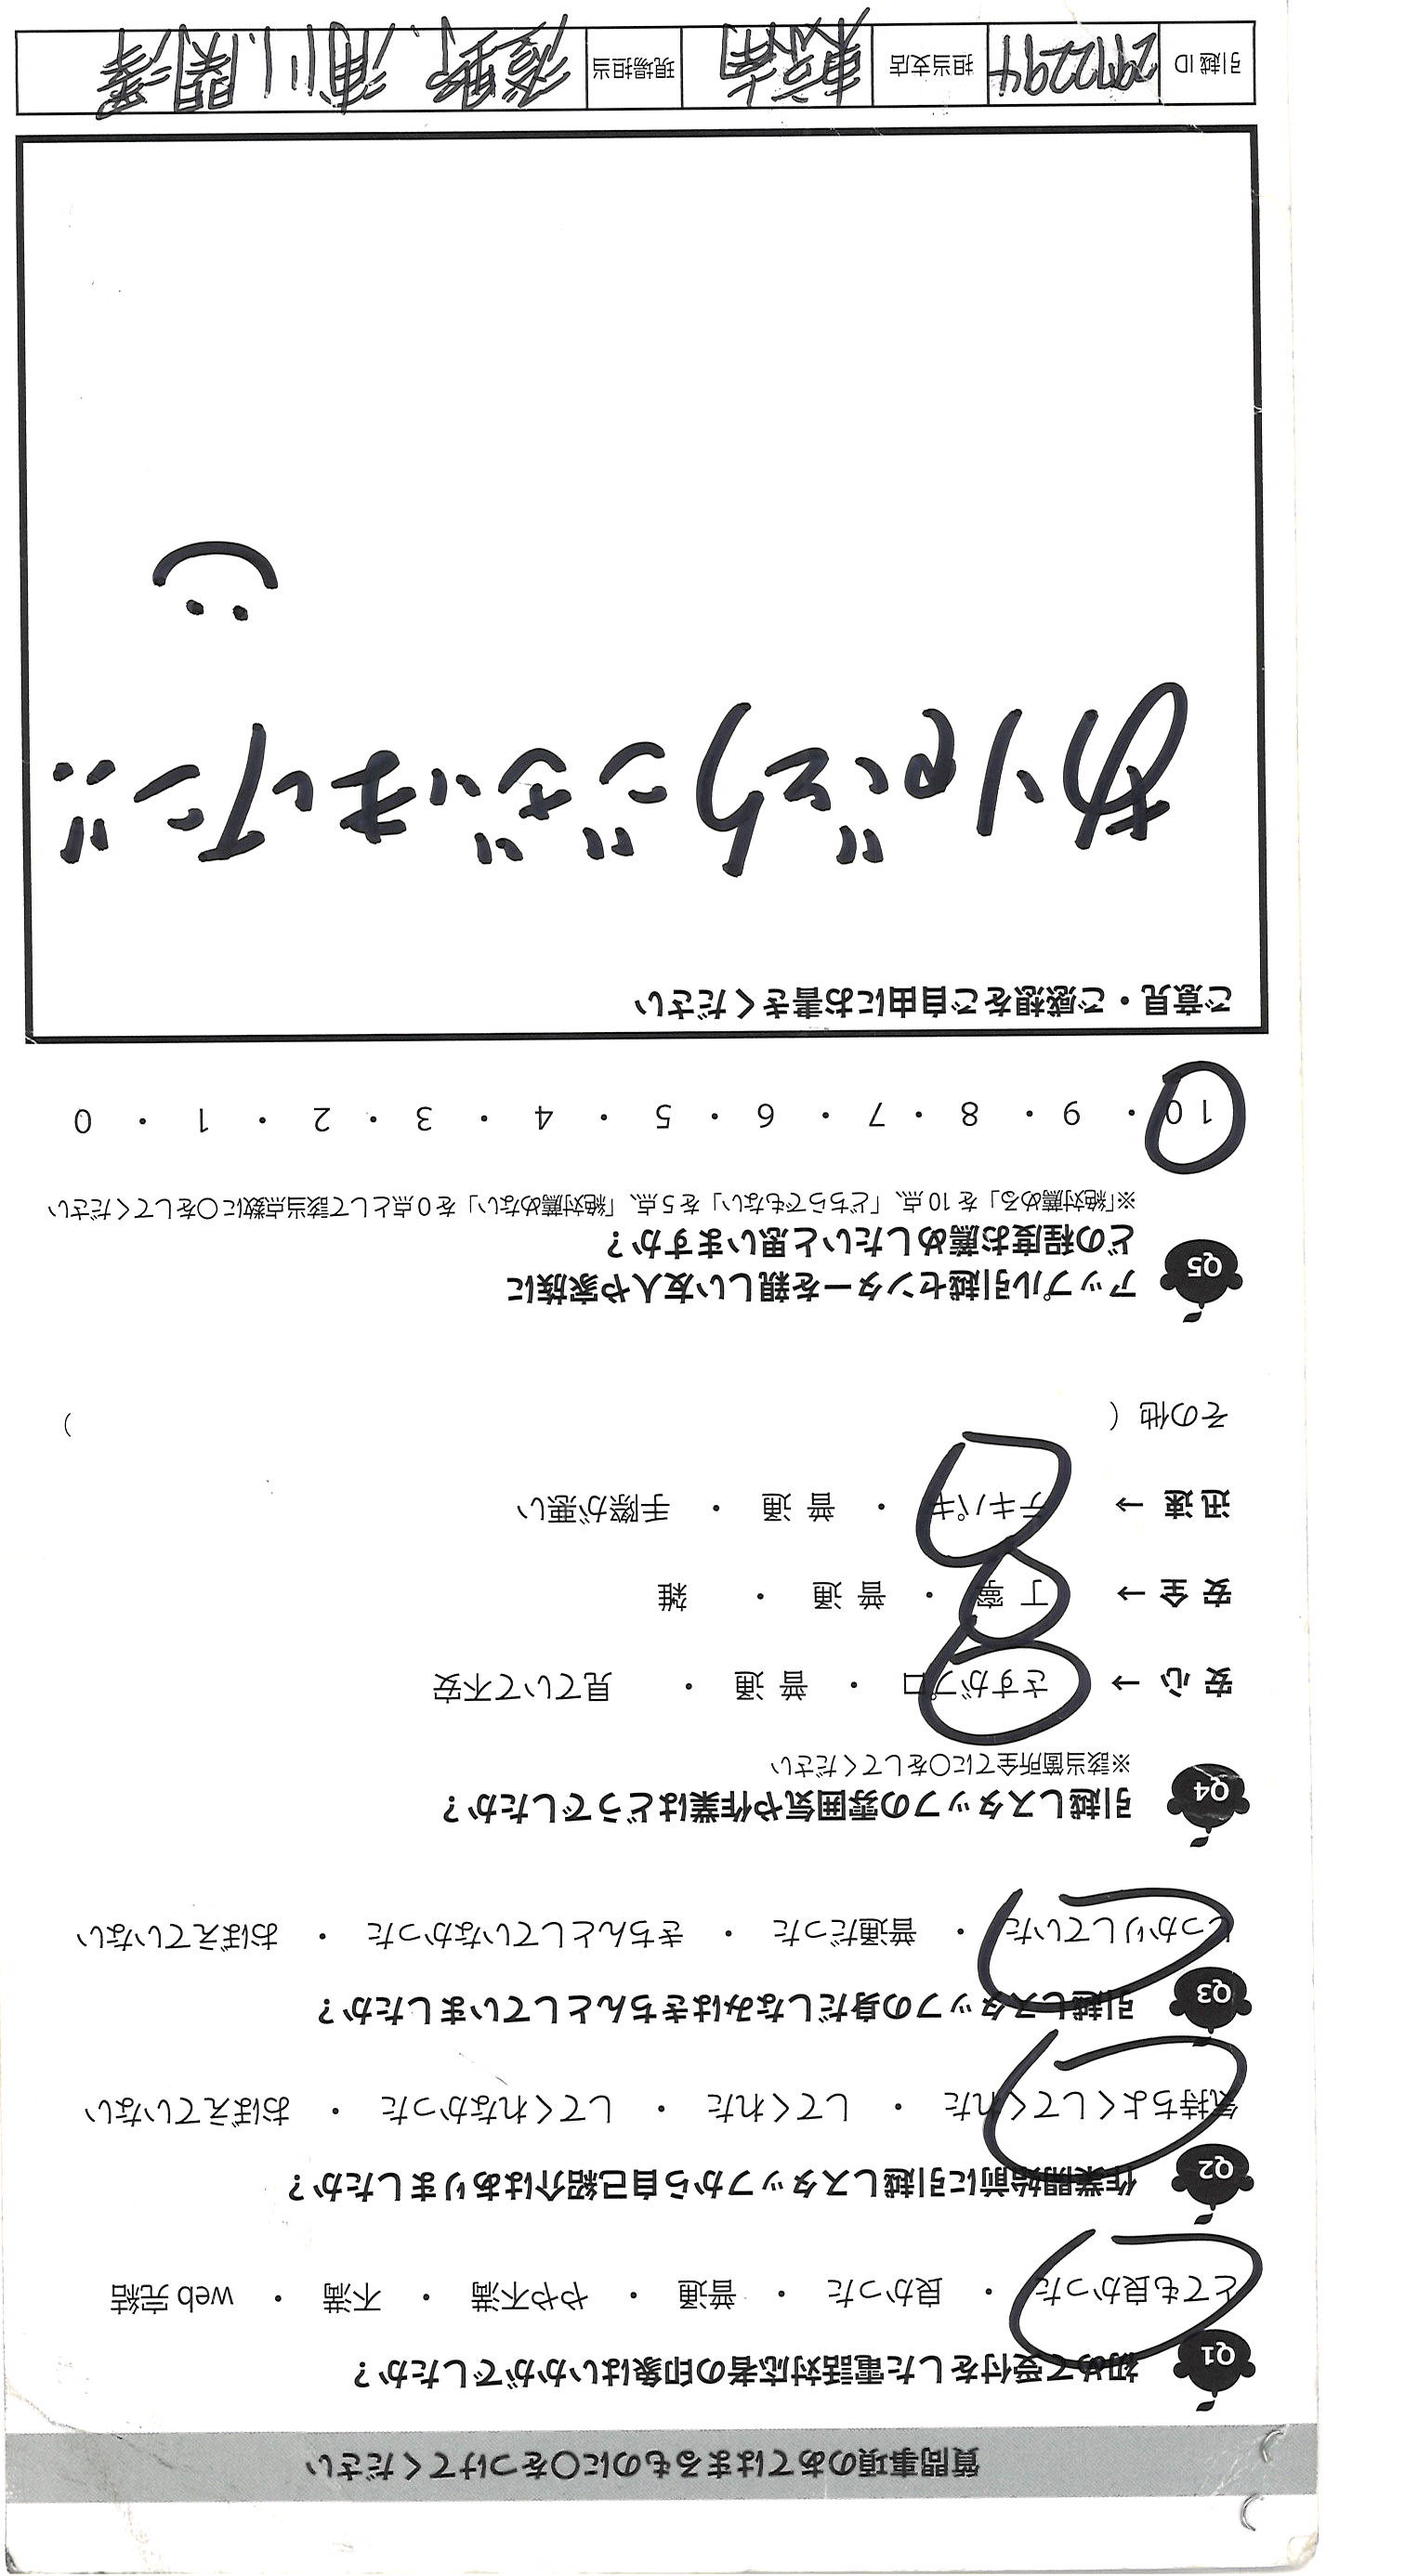 質問事項のあてはまるものに〇をつけてください
Q1 初めて受付をした電話対応者の印象はいかがでしたか？
とても良かった ・ 良かった ・ 普通 ・ やや不満 ・ 不満 ・ web 完結
Q2 作業開始前に引越しスタッフから自己紹介はありましたか？
気持ちよくしてくれた ・ してくれた ・ してくれなかった ・ おぼえていない
Q3 引越しスタッフの身だしなみはきちんとしていましたか？
しっかりしていた ・ 普通だった ・ きちんとしていなかった ・ おぼえていない
Q4 引越しスタッフの雰囲気や作業はどうでしたか？
※該当箇所全てに〇をしてください
安 心 → さすがプロ ・ 普 通 ・ 見ていて不安
安 全 → 丁 寧 ・ 普 通 ・ 雑
迅 速 → テキパキ ・ 普 通 ・ 手際が悪い
その他（ ）
Q5 アップル引越センターを親しい友人や家族に
どの程度お薦めしたいと思いますか？
※「絶対薦める」を 10 点、「どちらでもない」を 5 点、「絶対薦めない」を 0 点として該当点数に〇をしてください
10 ・ 9 ・ 8 ・ 7 ・ 6 ・ 5 ・ 4 ・ 3 ・ 2 ・ 1 ・ 0
ご意見・ご感想をご自由にお書きください
ありがとうございました!!
引越 ID 2972294 担当支店 東京南 現場担当 菅野、湯川、関澤